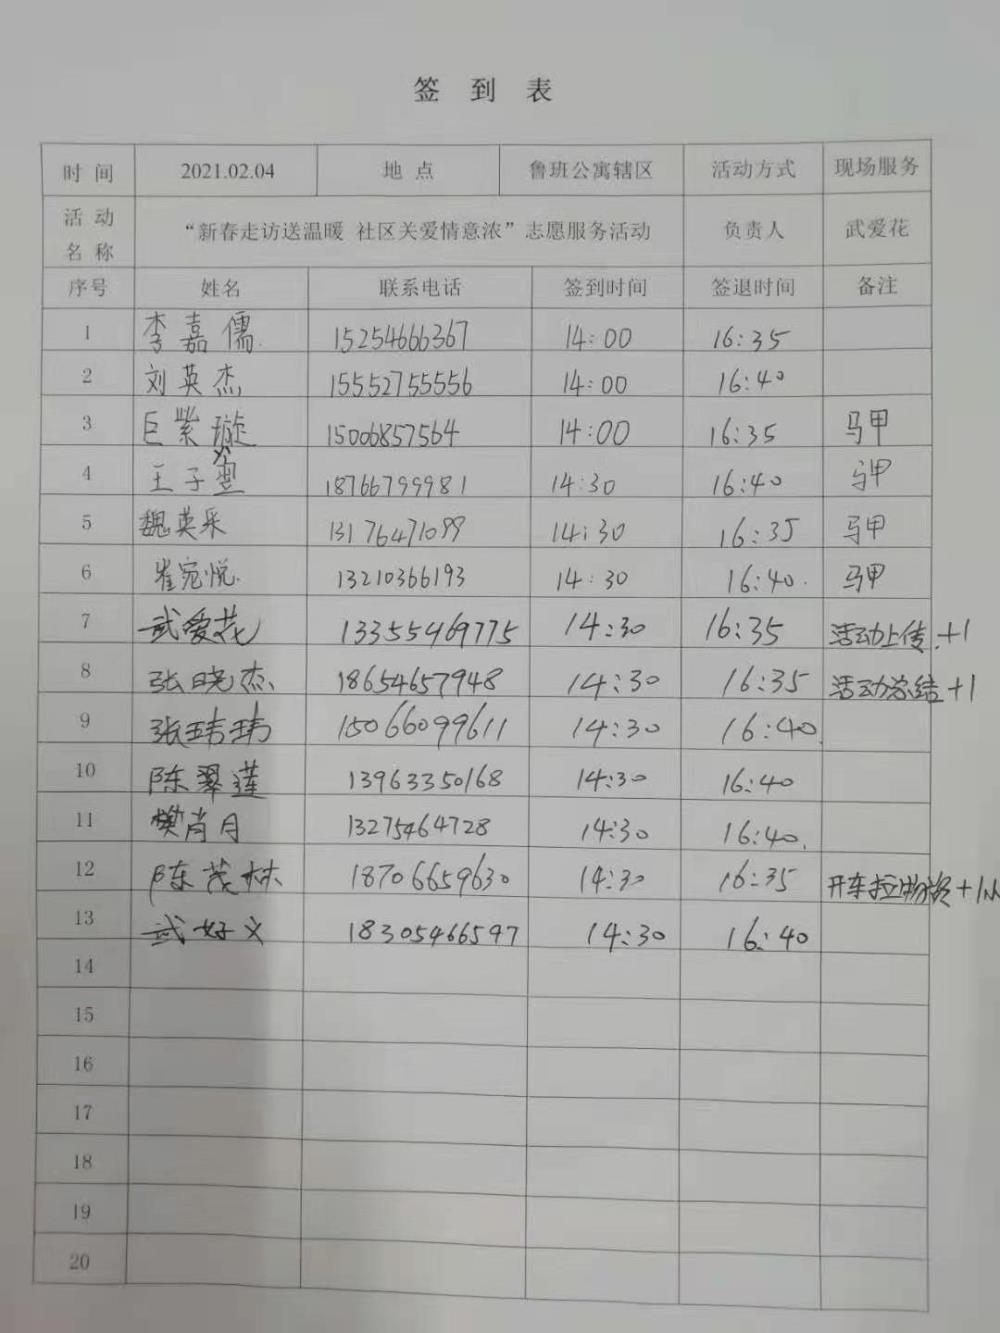 签 到 表
时 间 2021.02.04 地 点 鲁班公寓辖区 活动方式 现场服务
活 动 名 称 “新春走访送温暖 社区关爱情意浓”志愿服务活动 负责人 武爱花
序号 姓名 联系电话 签到时间 签退时间 备注
1 李嘉儒 15254666367 14:00 16:35
2 刘英杰 15552755556 14:00 16:40
3 巨紫璇 15006857564 14:00 16:35 马甲
4 王子 18766799981 14:30 16:40 马甲
5 魏英采 13176471099 14:30 16:35 马甲
6 崔宛悦 13210366193 14:30 16:40. 马甲
7 武爱花 13355469775 14:30 16:35 活动上传.+1
8 张晓杰 18654657948 14:30 16:35 活动总结+1
9 张玮玮 15066099611 14:30 16:40.
10 陈翠莲 13963350168 14:30 16:40
11 樊肖月 13275464728 14:30 16:40.
12 陈茂林 18706659630 14:30 16:35 开车拉物资+1
13 武好义 18305466597 14:30 16:40
14
15
16
17
18
19
20